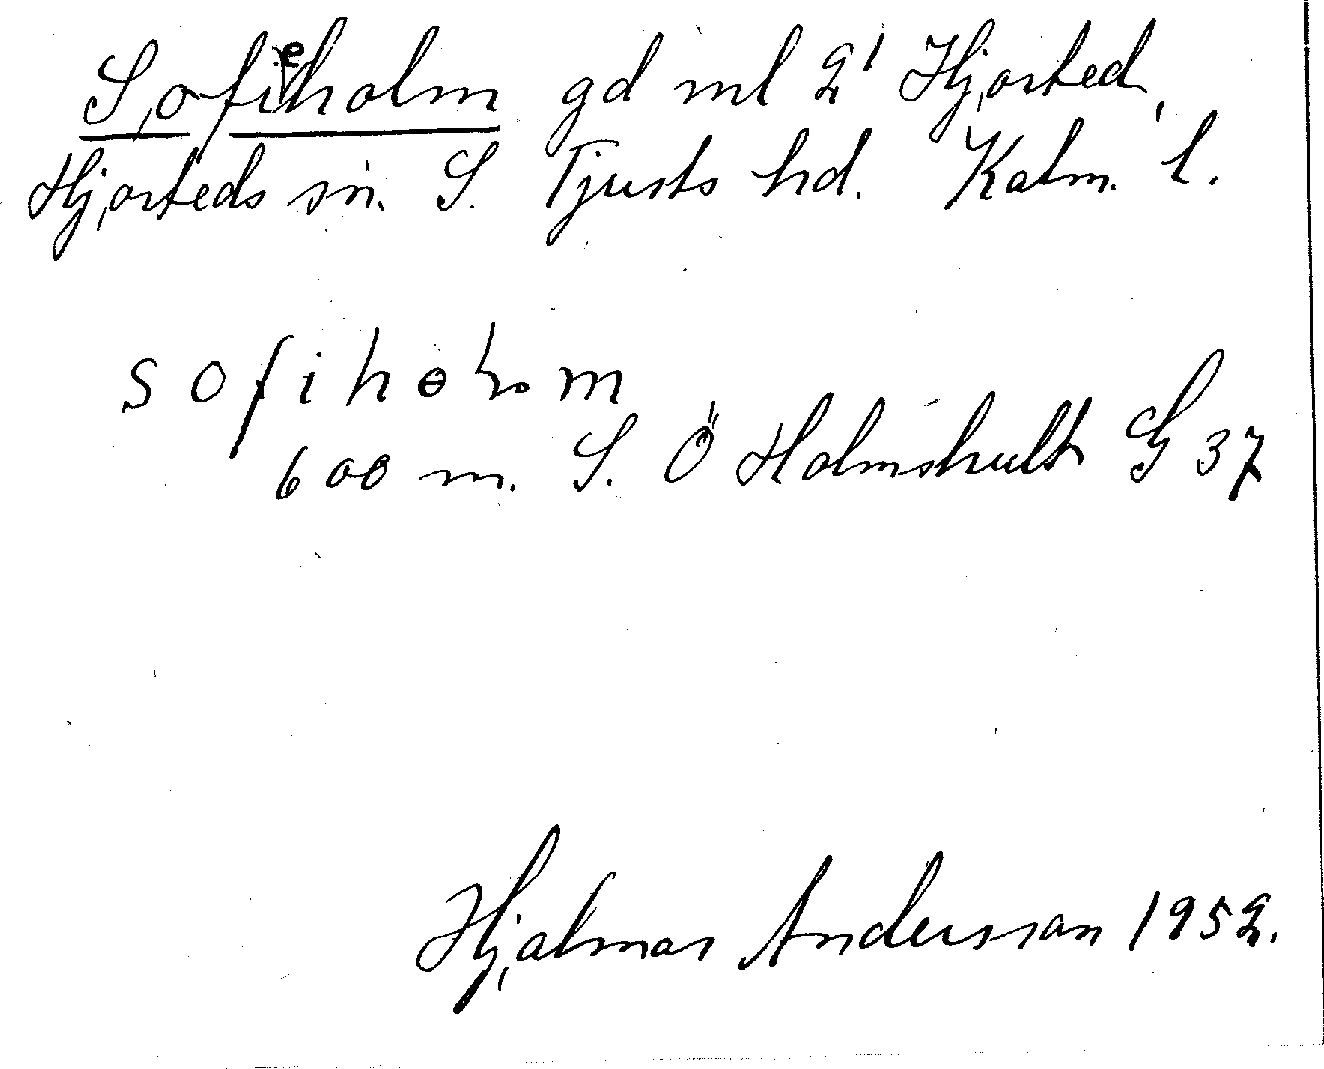 Sofieholm gd ml 2¹ Hjorted,
Hjorteds sn. S. Tjusts hd. Kalm. l.
sofihɵlm
600 m. S. Ö Holmshult G 37
Hjalmar Andersson 1952.